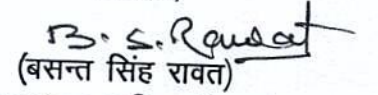 B. S. Rawat
(बसन्त सिंह रावत)